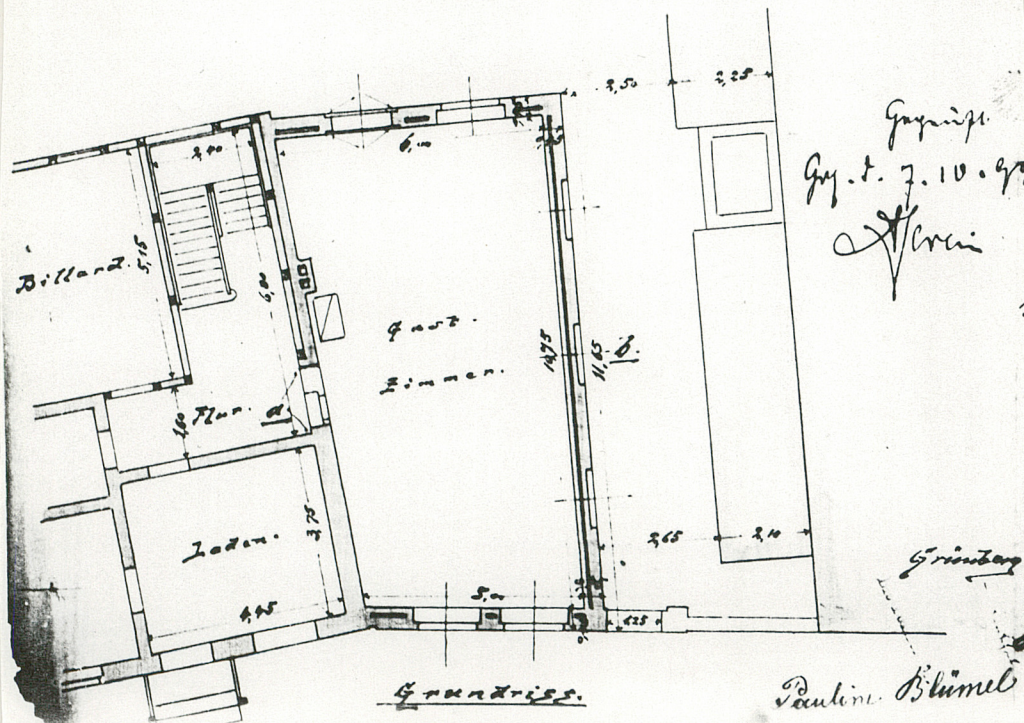 2,50
2,25
Geprüft.
2,40
6,00
Billard.
5,15
6,00
Gast.
Zimmer.
10,75
11,65
b.
Flur.
a.
1,60
Laden.
3,75
4,45
2,65
2,10
5,00
1,25
Grünberg
Grundriss.
Paulin. Blümel